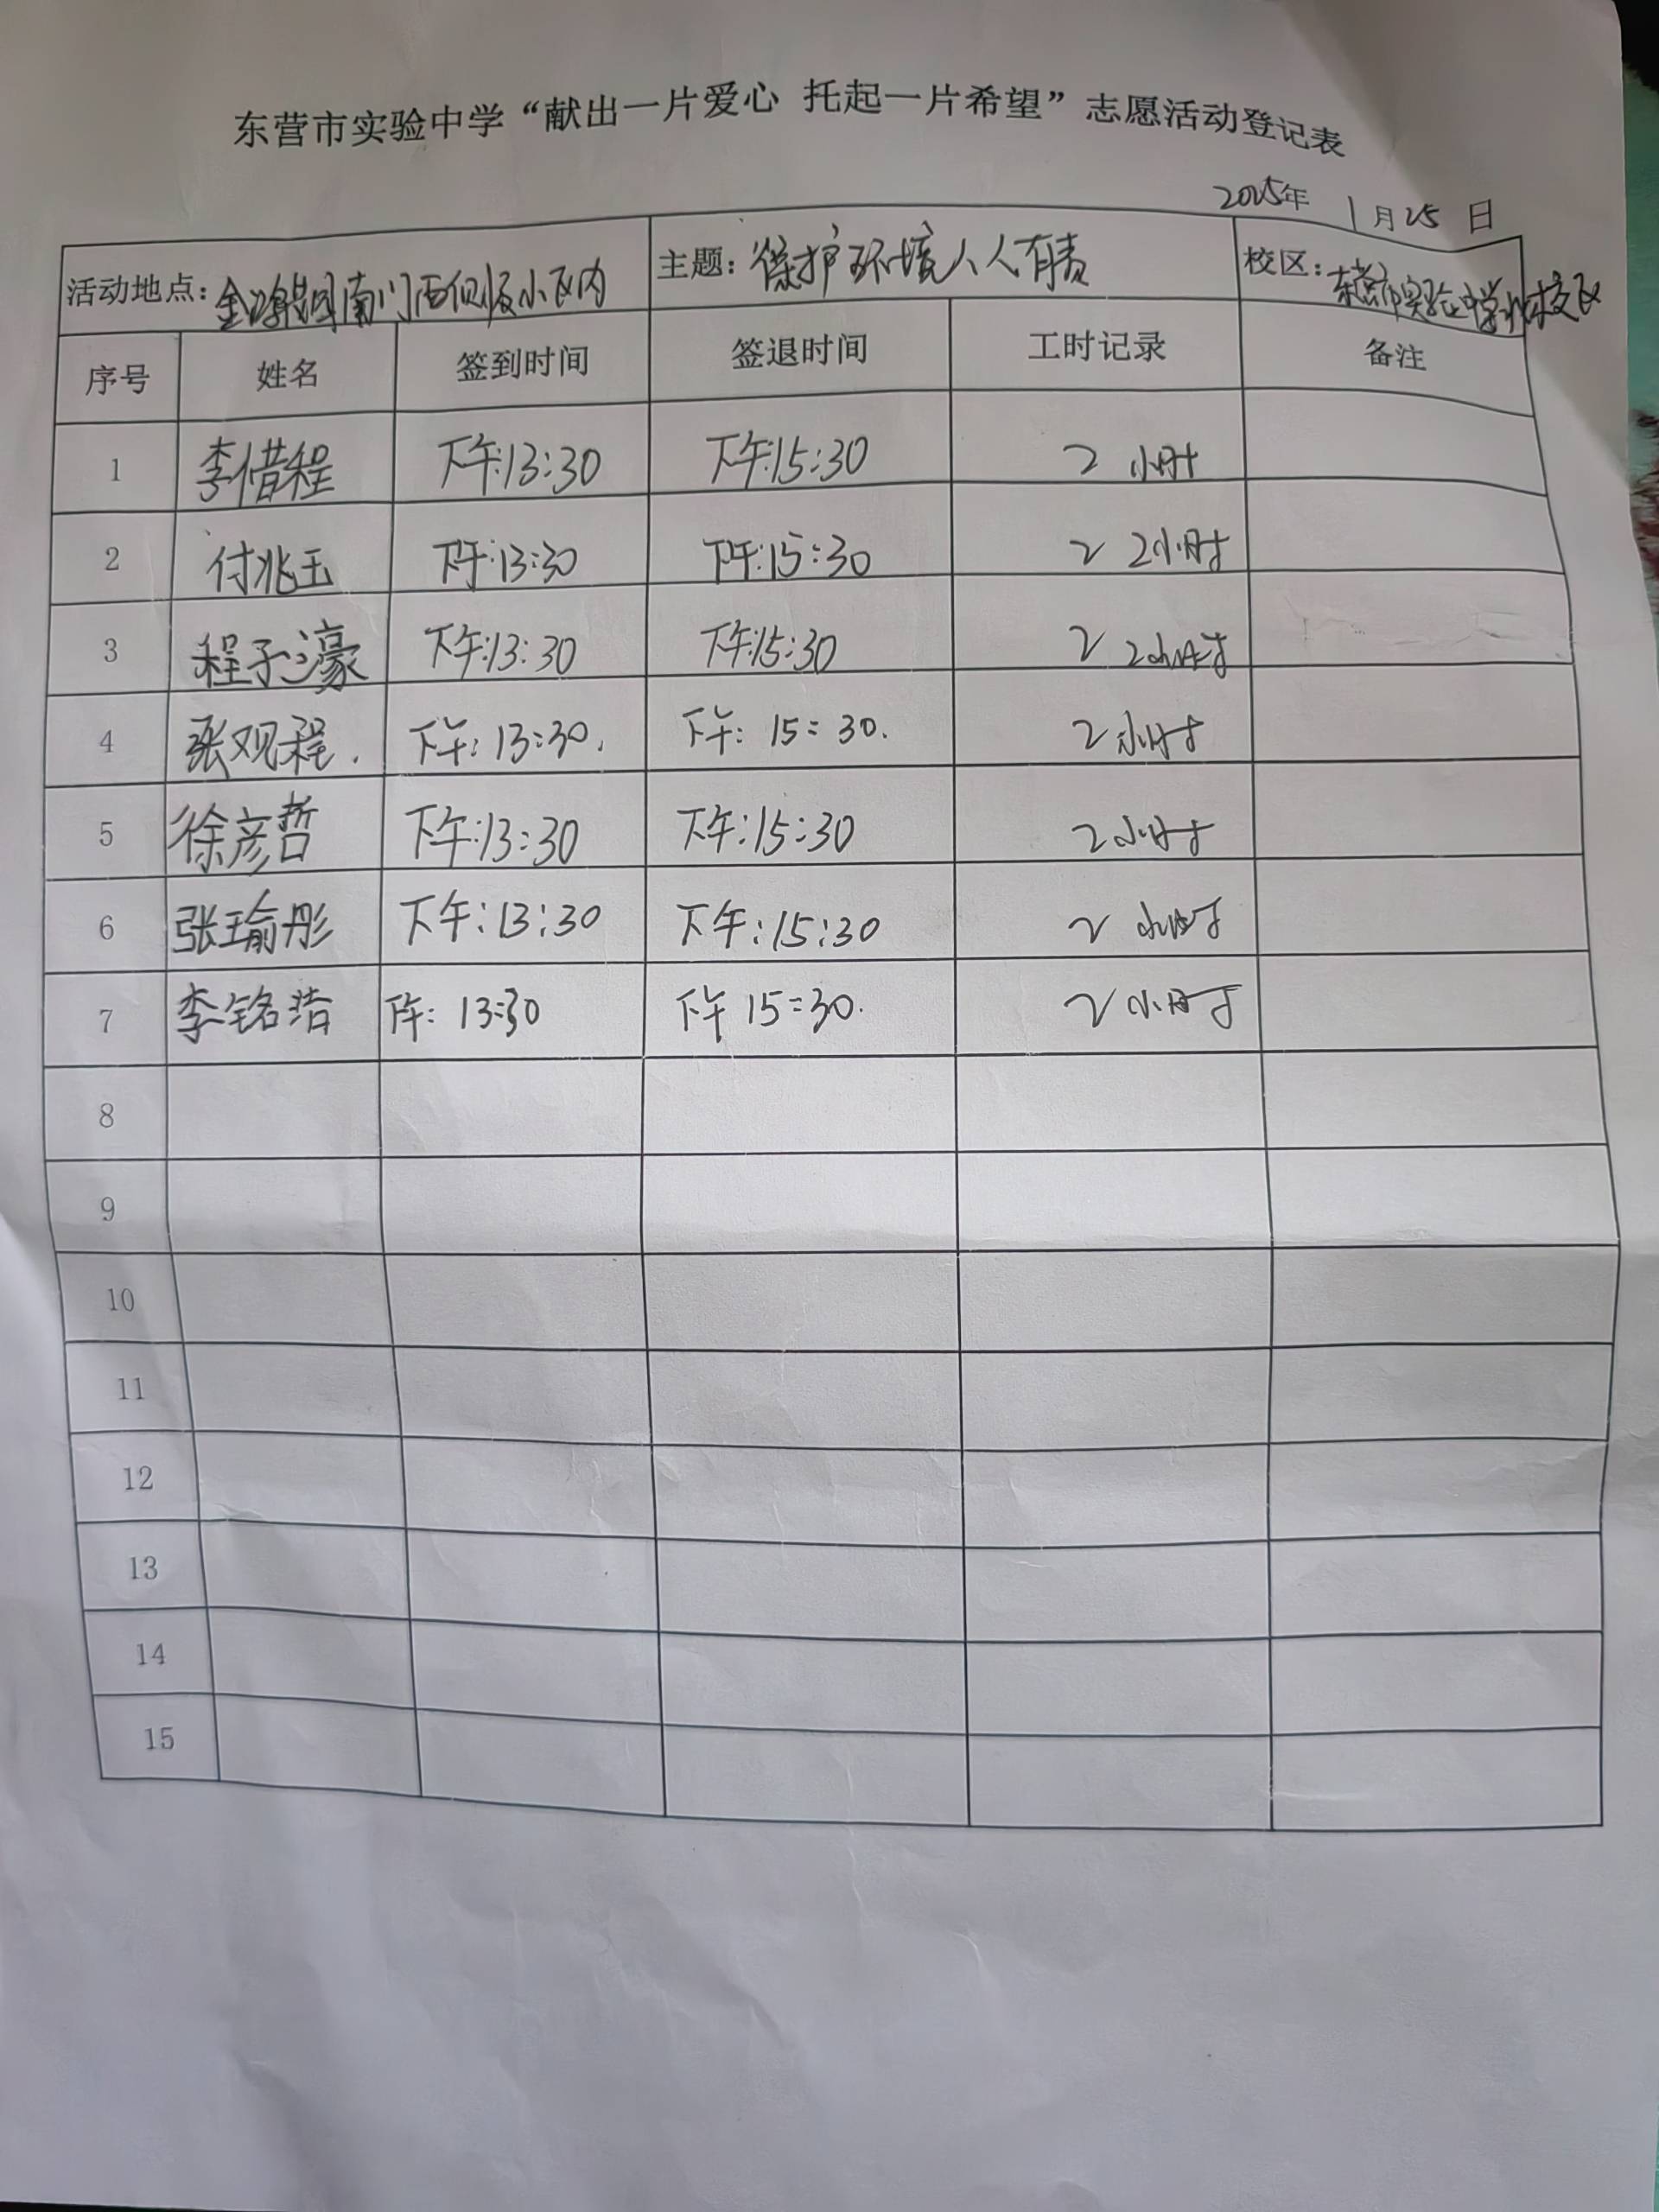 东营市实验中学“献出一片爱心 托起一片希望”志愿活动登记表
2025年 1月25 日
活动地点: 南门西侧及小区内 主题: 保护环境人人有责 校区: 东营市实验中学 校区
序号 姓名 签到时间 签退时间 工时记录 备注
1 李借程 下午:13:30 下午:15:30 2 小时
2 付兆玉 下午:13:30 下午:15:30 2 2小时
3 程子濠 下午:13:30 下午:15:30 2 2小时
4 张观程. 下午: 13:30. 下午: 15:30. 2小时
5 徐彦哲 下午:13:30 下午:15:30 2小时
6 张瑜彤 下午:13:30 下午:15:30 2 小时
7 李铭浩 下午: 13:30 下午 15:30. 2小时
8
9
10
11
12
13
14
15